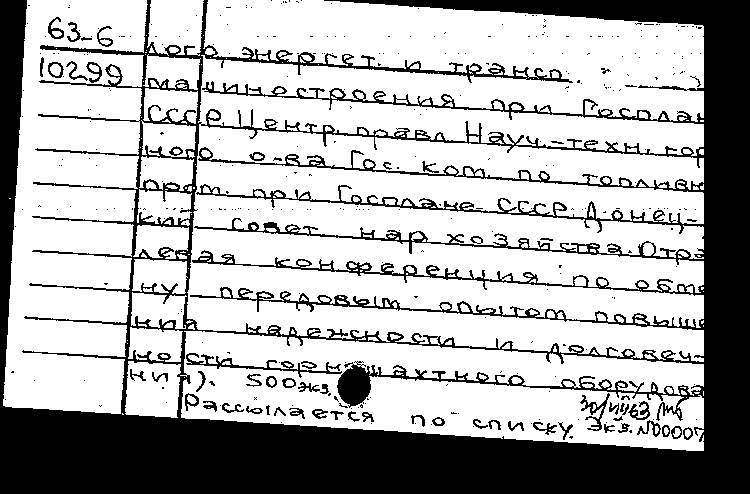 63-6
10299
лого, энергет. и трансп.
машиностроения при Госплан
СССР. Центр. правл. Науч.-техн. гор
ного о-ва Гос. ком. по топливн
пром. при Госплане СССР. Донец-
кий совет нар хозяйства. Отра
левая конференция по обме
ну передовым опытом повыше
ния надежности и долговеч-
ности горношахтного оборудова
ния). 500экз.
Рассылается по списку. Экз. №00007